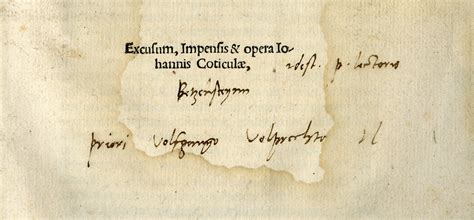 Excusum, Impensis & opera Io-
hannis Coticulæ, idest. p. lectoris
Betzensteynn
priori Volfgango Volprechto